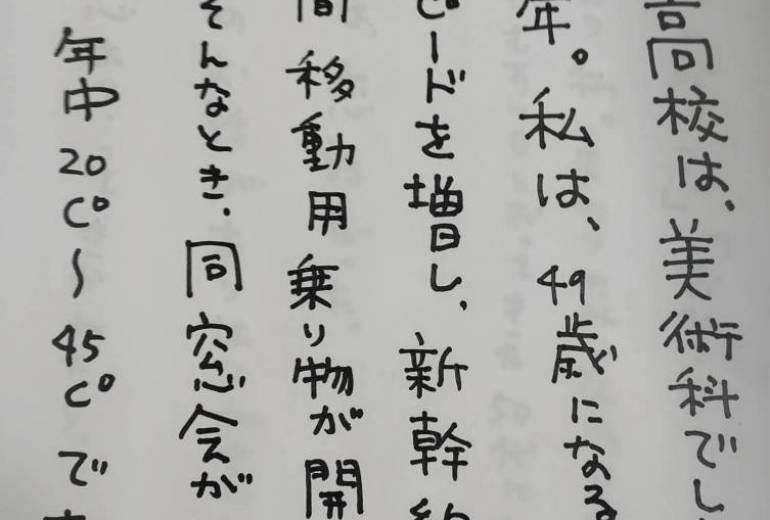 高校は、美術科でし
年。私は、49歳になる
ピードを増し、新幹
間移動用乗り物が開
そんなとき、同窓会が
年中20C°~45C°で